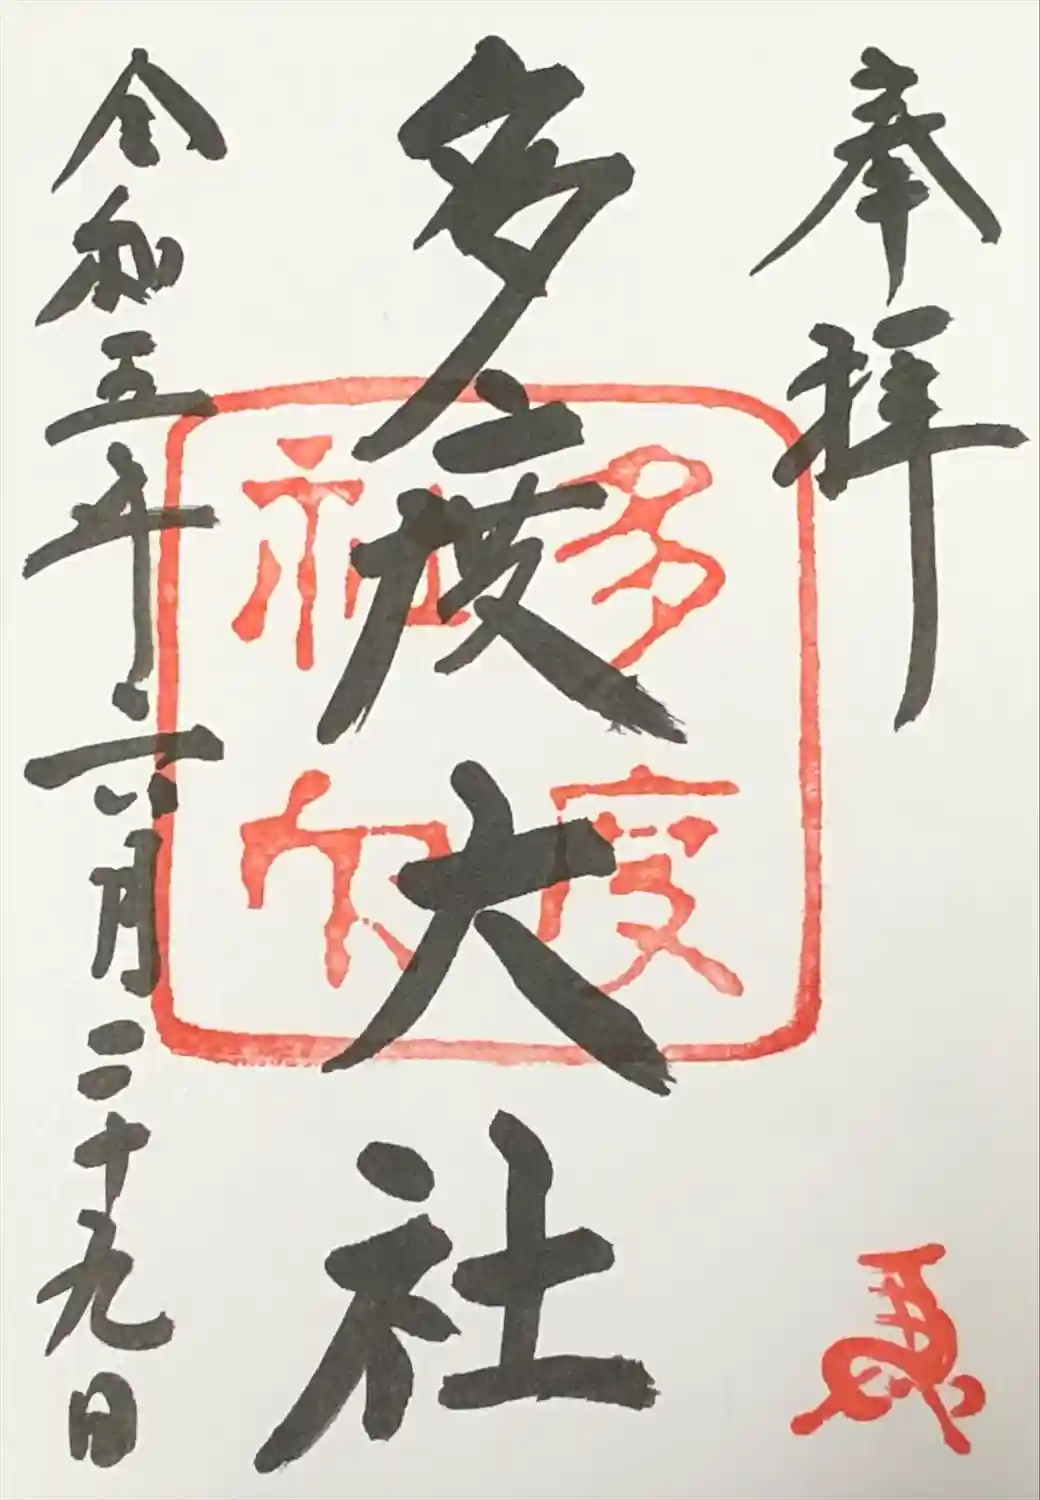 奉拝
多度大社
多度
社印
令和五年六月二十九日